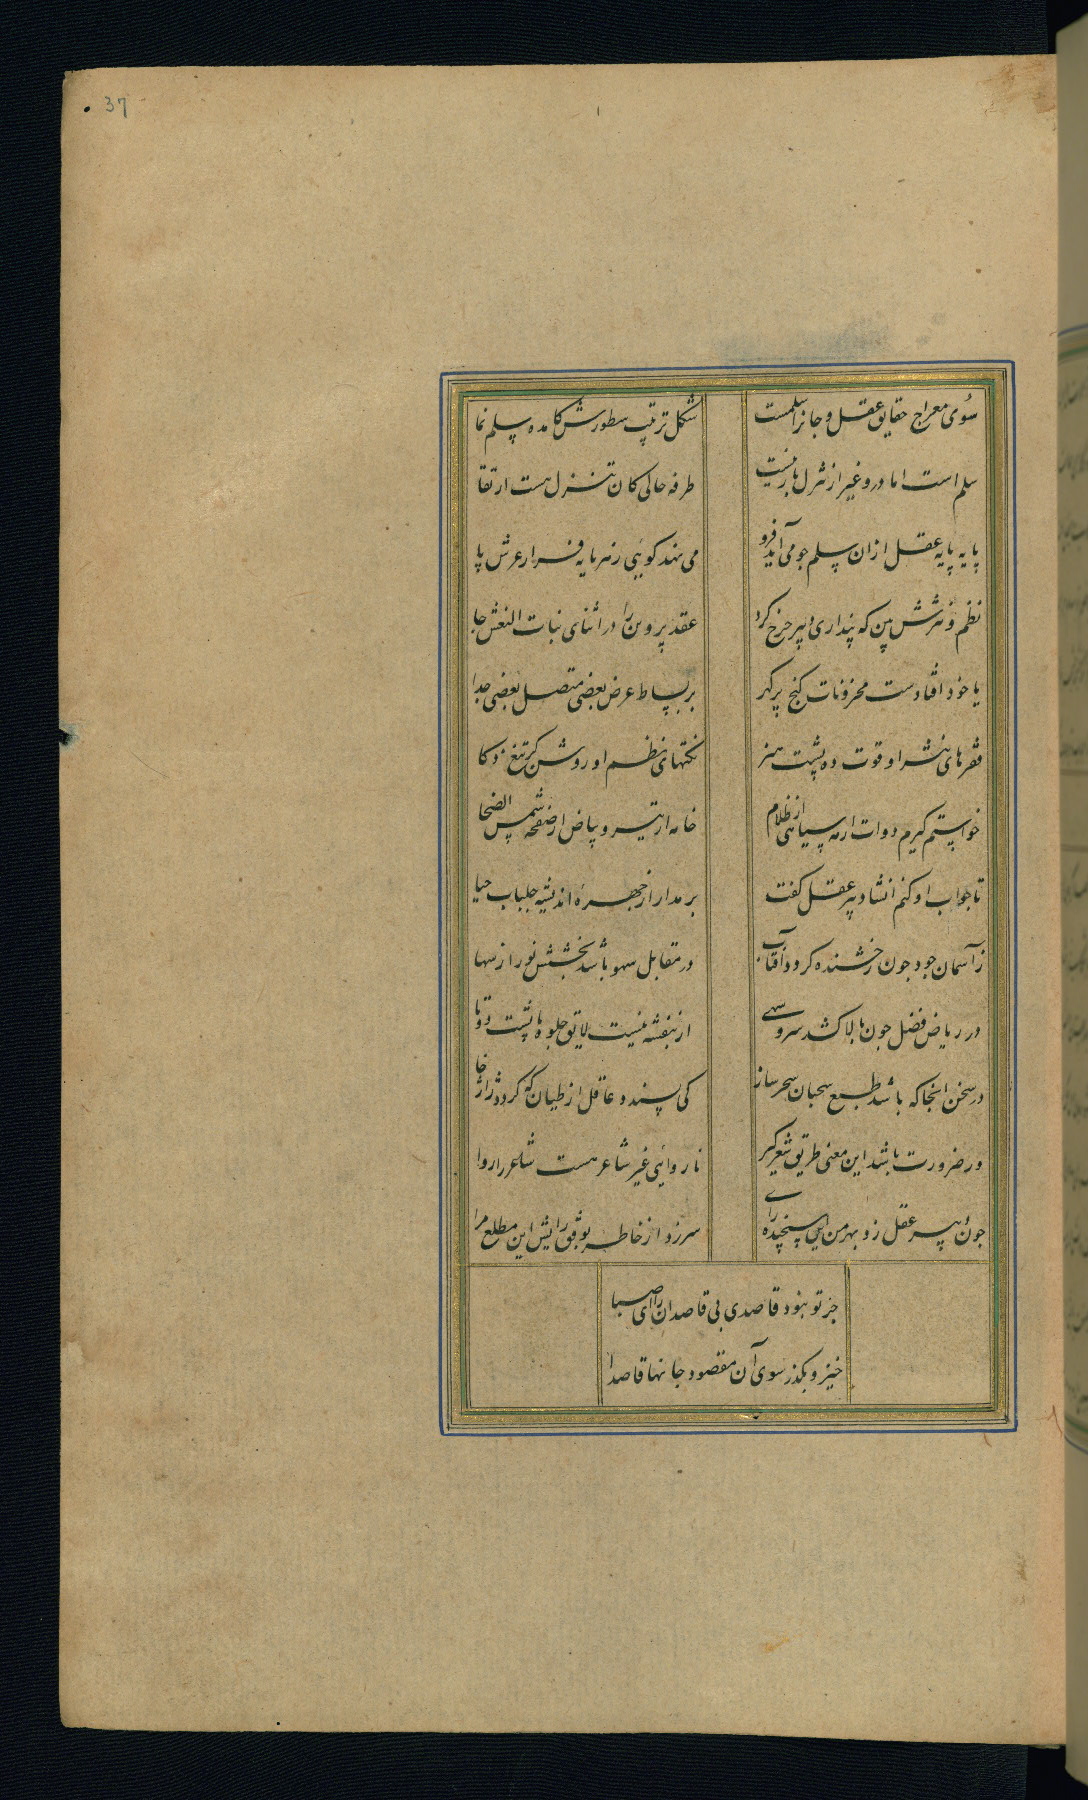 37
سوی معراج حقایق عقل و جانرا سلمست شکل ترتیب سطورش کامده سلم نما
سلم است اما درو غیر از تنزل بار نیست طرفه حالی کان تنزل هست ارتقا
پایه پایه عقل ازان سلم جو می آید فرو می نهد کویی ز هر پایه فراز عرش پا
نظم و نثرش بین که پنداری دبیر چرخ کرد عقد پروین را در اثنای نبات النعش جا
یا خود افتادست مخزونات کنج پر کهر بر بساط عرض بعضی متصل بعضی جدا
فقرهای نثر او قوت ده پشت هنر نکتهای نظم او روشن کر تیغ ذکا
خواستم کیرم دوات ارمه سیاهی از ظلام خامه از تیر و بیاض از صفحه شمس الضحا
تا جواب او کنم انشاد پیر عقل کفت بر مدار از چهره اندیشه جلباب حیا
ز آسمان جود جون رخشنده کردد آفتاب در مقابل سهو باشد بخشش نور از سها
در ریاض فضل جون بالا کشد سرو سهی از بنفشه نیست لایق جلوه با پشت دوتا
در سخن انجا که باشد طبع سحبان سحر ساز کی پسندد عاقل از طیان که کردد ژاژ خا
ور ضرورت باشد این معنی طریق شعر کیر نا روایی غیر شاعر هست شاعر را روا
جون پیر عقل زد بهر من این سنجیده رای سرزد از خاطر بوفق رایش این مطلع مرا
جز تو نبود قاصدی بی قاصدان را ای صبا
خیز و بکذر سوی آن مقصود جانها قاصدا